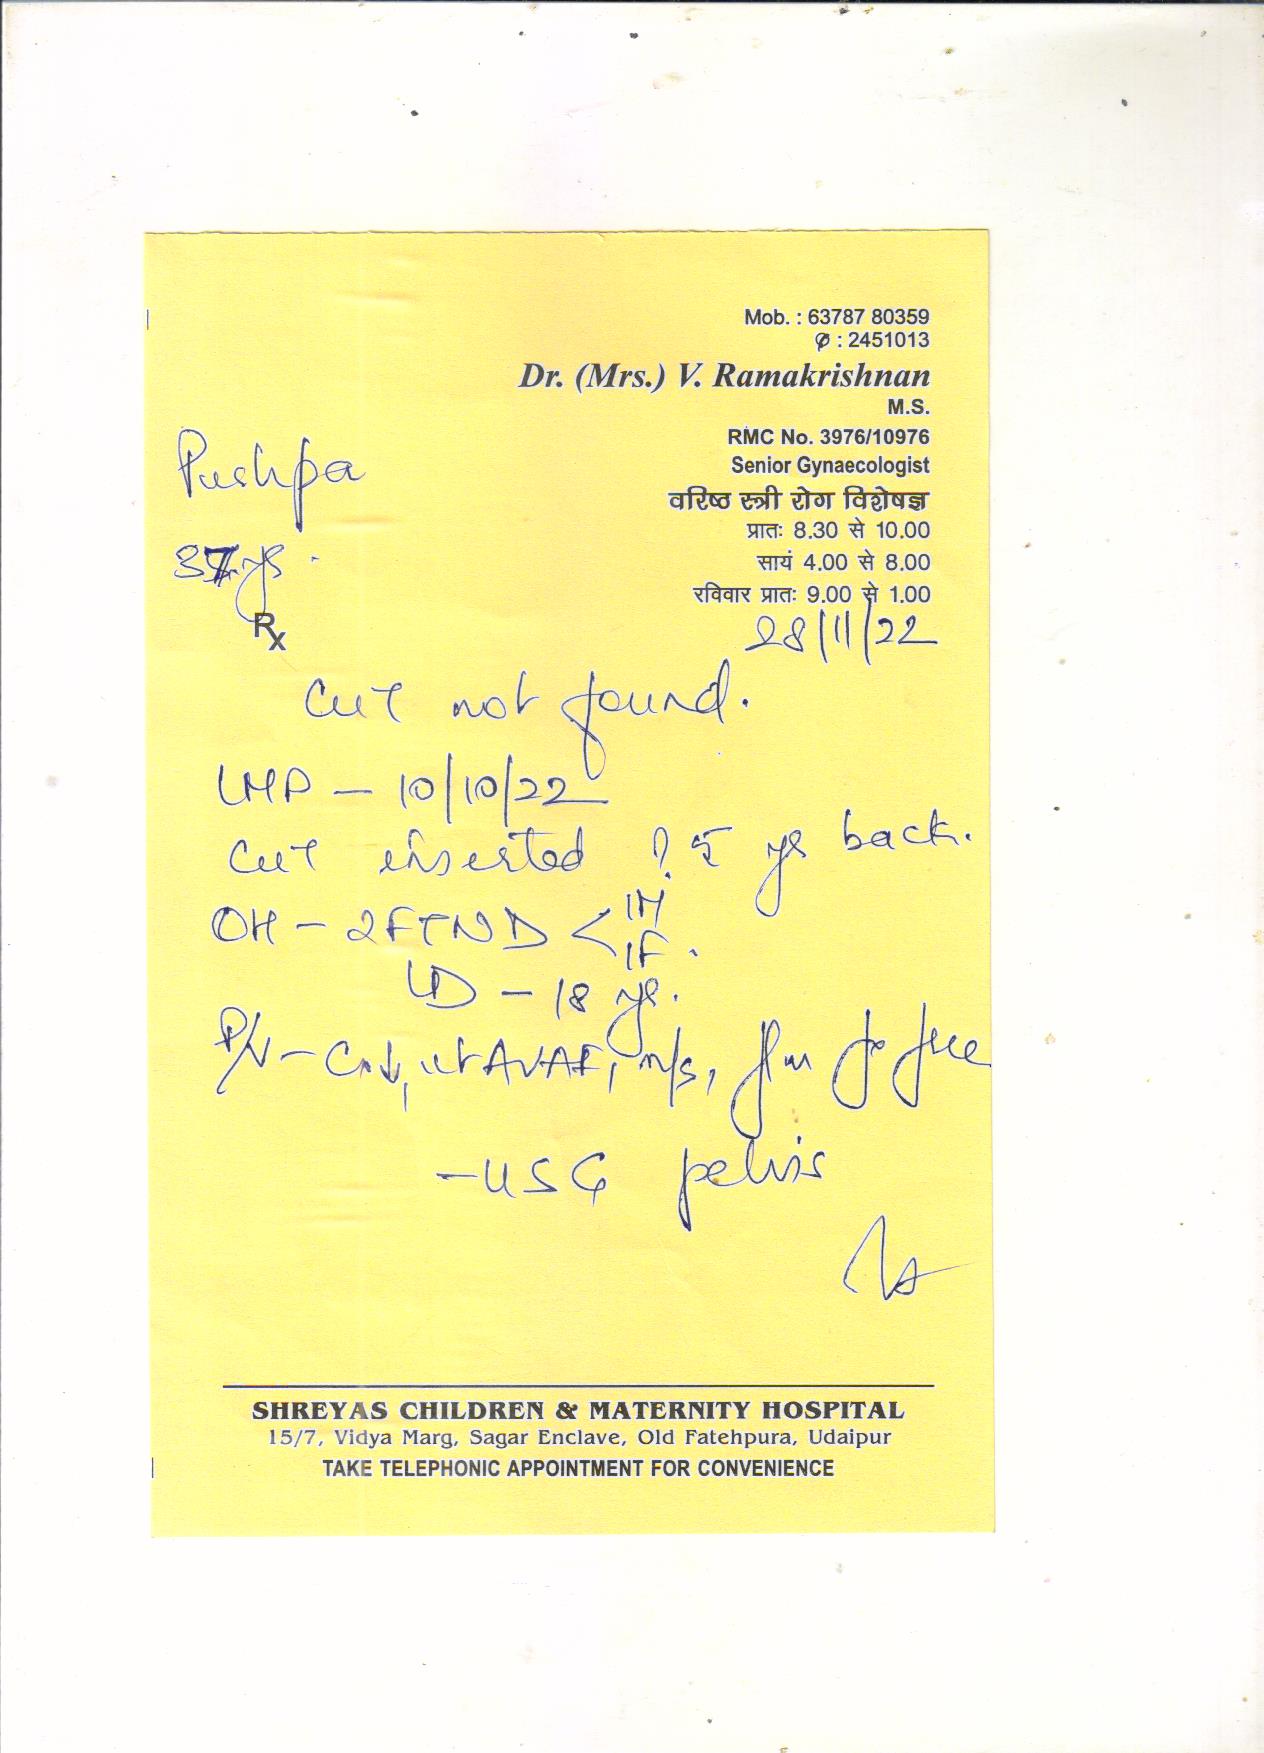 Mob. : 63787 80359
: 2451013
Dr. (Mrs.) V. Ramakrishnan
M.S.
RMC No. 3976/10976
Senior Gynaecologist
वरिष्ठ स्त्री रोग विशेषज्ञ
प्रातः 8.30 से 10.00
सायं 4.00 से 8.00
रविवार प्रातः 9.00 से 1.00
Pushpa
37 yrs.
Rx
28/11/22
CuT not found.
LMP - 10/10/22
CuT inserted ? 5 yrs back.
OH - 2FTND < 1M
1F.
LD - 18 yrs.
P/V - Cx↓, ut AVAF, n/s, free
- USG pelvis
SHREYAS CHILDREN & MATERNITY HOSPITAL
15/7, Vidya Marg, Sagar Enclave, Old Fatehpura, Udaipur
TAKE TELEPHONIC APPOINTMENT FOR CONVENIENCE